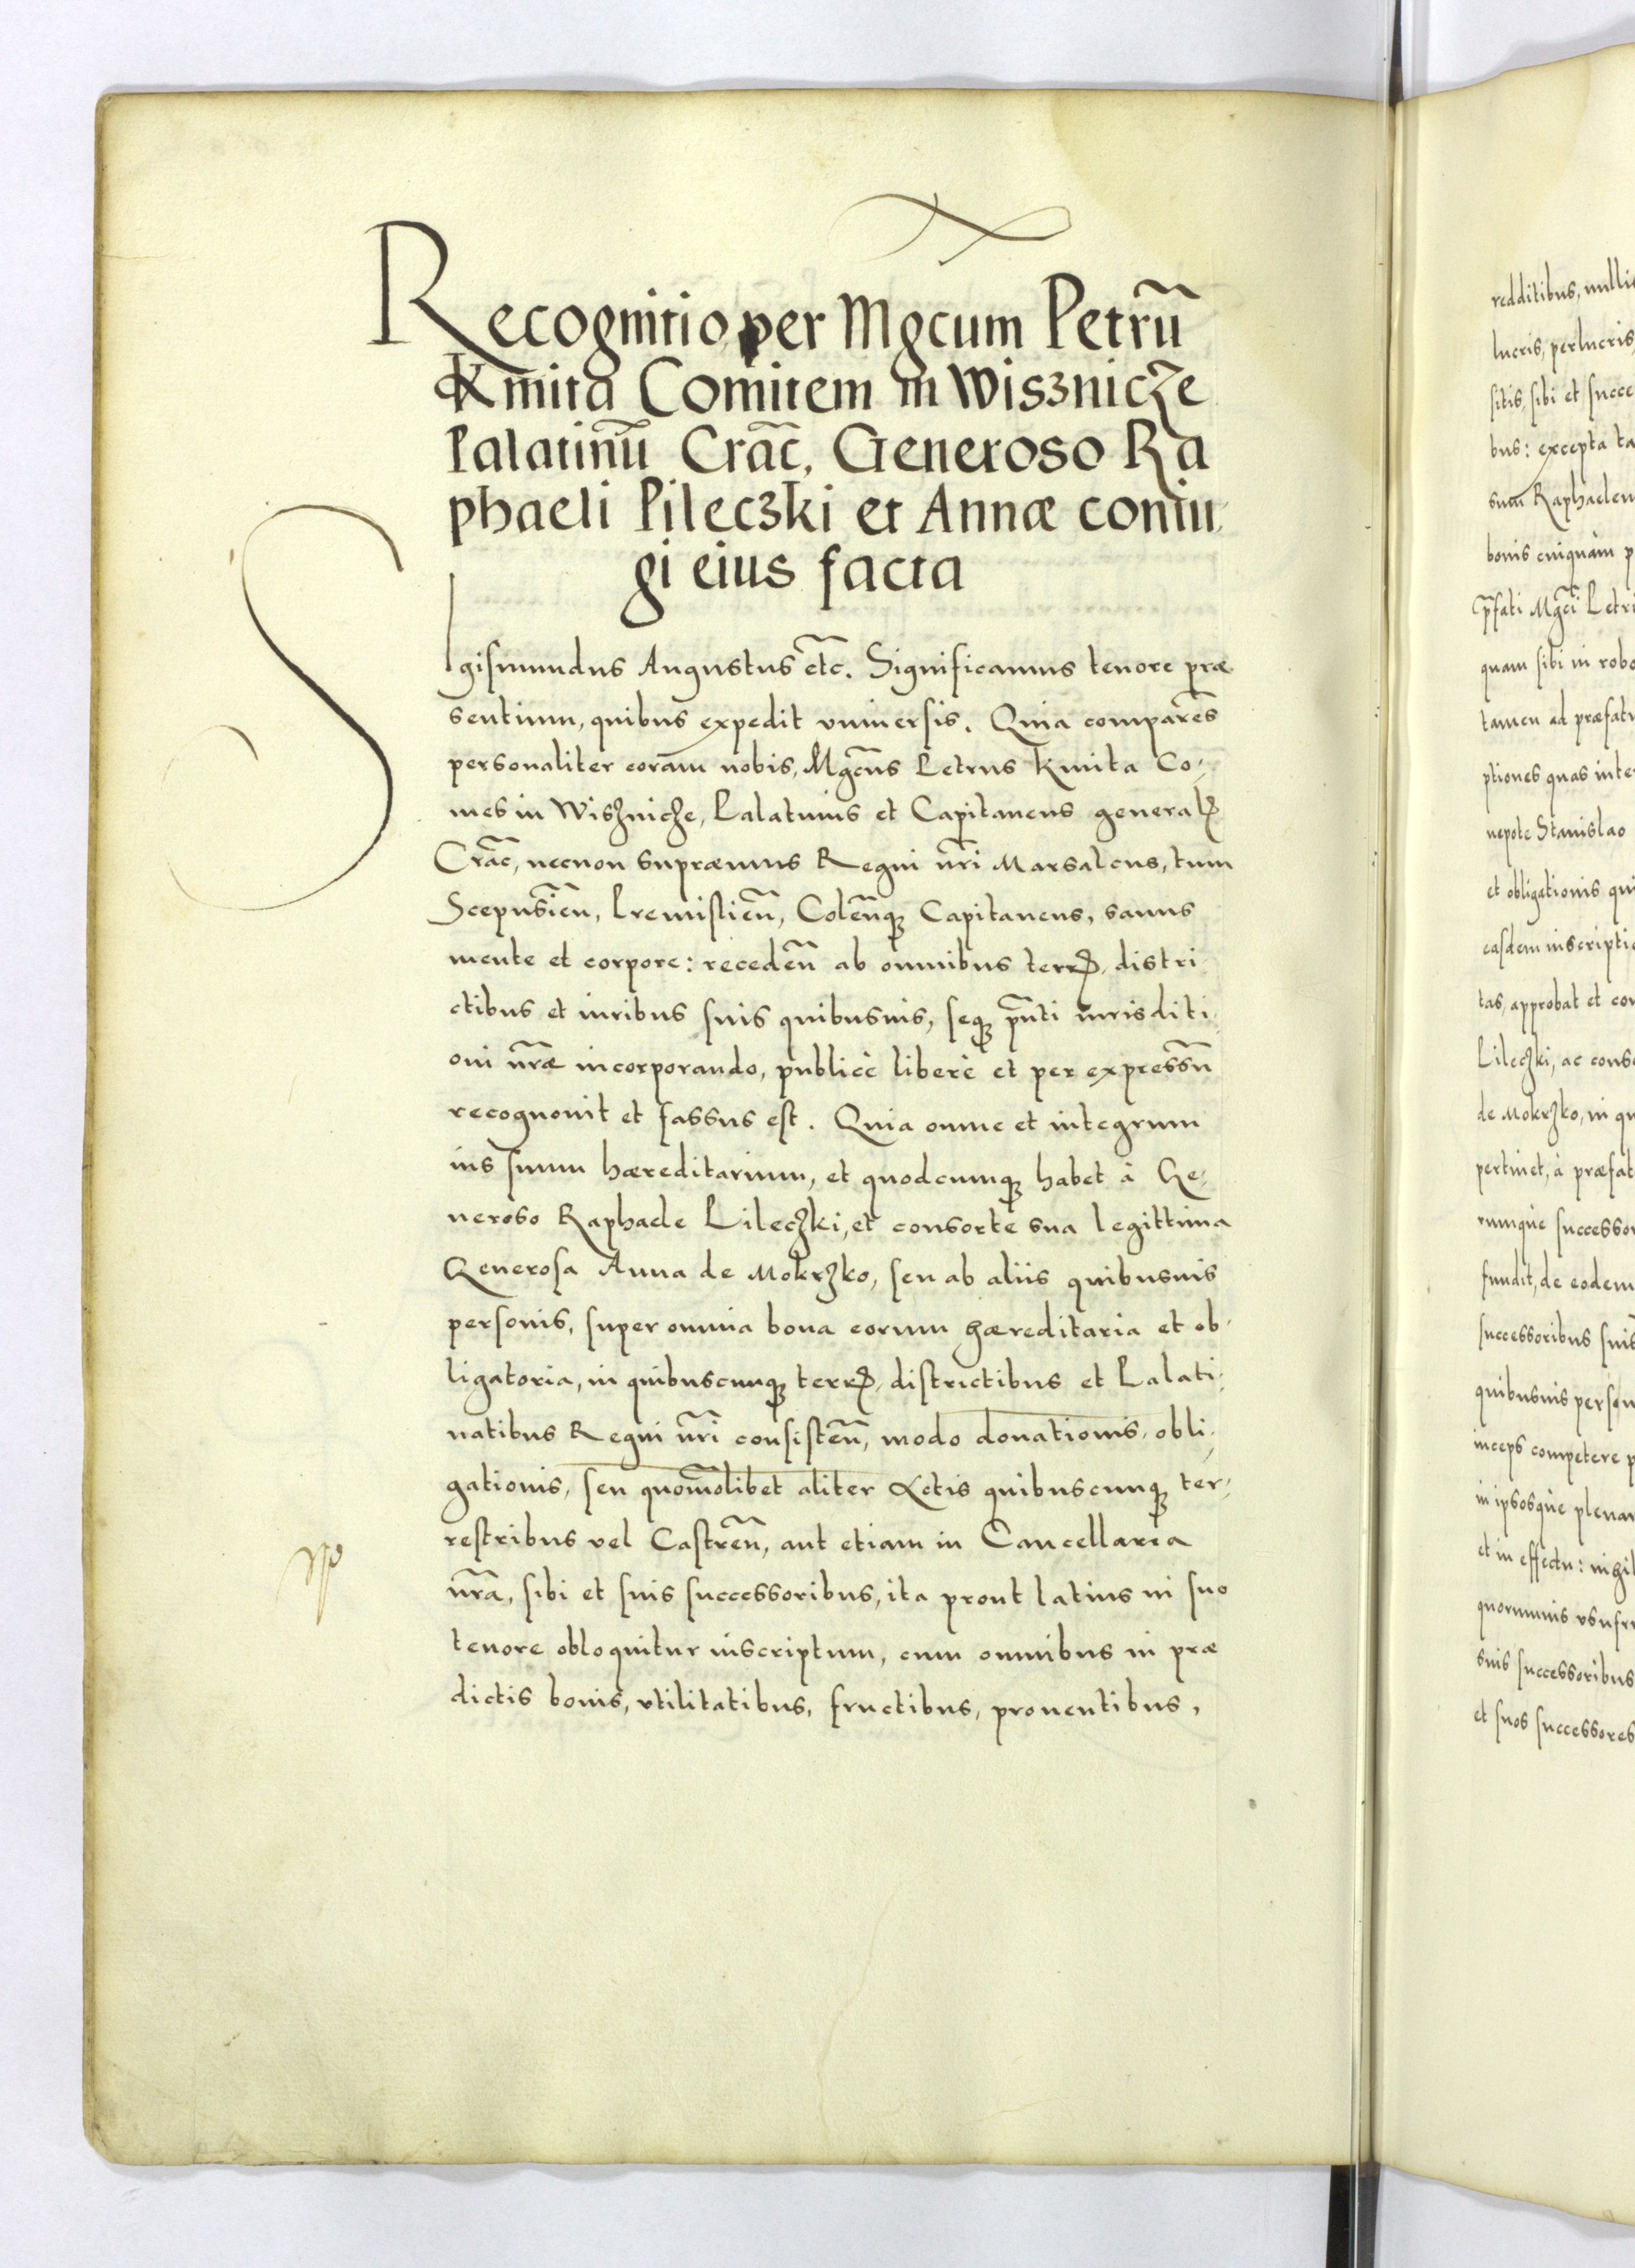 Recognitio per Mgcum Petrũ
Kmita Comitem in Wisznicze
Palatinũ Crac̃, Generoso Ra
phaeli Pileczki et Annæ coniu-
gi eius facta
SIgismundus Augustus etc̃. Significamus tenore præ
sentium, quibus expedit vniuersis. Quia comparẽs
personaliter coram nobis, Mgcũs Petrus Kmita Co-
mes in Wisznicze, Palatinus et Capitaneus generalꝭ
Crac̃, necnon supræmus Regni nr̃i Marsalcus, tum
Scepusień, Premislień, Coleñqꝫ Capitaneus, sanus
mente et corpore: recedeñ ab omnibus terrꝭ, distri-
ctibus et iuribus suis quibusuis, seqꝫ pñti iurisditi-
oni nr̃æ incorporando, publicè liberè et per expressũ
recognouit et fassus est. Quia omne et integrum
ius suum hæreditarium, et quodcumqꝫ habet à Ge-
neroso Raphaele Pileczki, et consorte sua legittima
Generosa Anna de Mokrzko, seu ab aliis quibusuis
personis, super omnia bona eorum hæreditaria et ob-
ligatoria, in quibuscunqꝫ terrꝭ, districtibus et Palati-
natibus Regni nr̃i consisteñ, modo donationis, obli-
gationis, seu quom̃olibet aliter Actis quibuscunqꝫ ter-
restribus vel Castreñ, aut etiam in Cancellaria
nr̃a, sibi et suis successoribus, ita prout latius in suo
tenore obloquitur inscriptum, cum omnibus in præ
dictis bonis, vtilitatibus, fructibus, prouentibus,
redditibus, nulli
lucris, perlucris,
sitis, sibi et succe
bus: excepta ta
sum Raphaelem
bonis cuiquàm p
p̃fati Mgc̃i Petri
quam sibi in robo
tamen ad præfatu
ptiones quas inte
nepote Stanislao
et obligationis qui
easdem inscriptio
tas, approbat et con
Pileczki, ac conso
de Mokrzko, in qu
pertinet, à præfat
rumque successor
fundit, de eodem
successoribus suis
quibusuis person
inceps competere p
in ipsosque plenar
et in effectu: nihil
quorumuis vsufr
suis successoribus
et suos successores